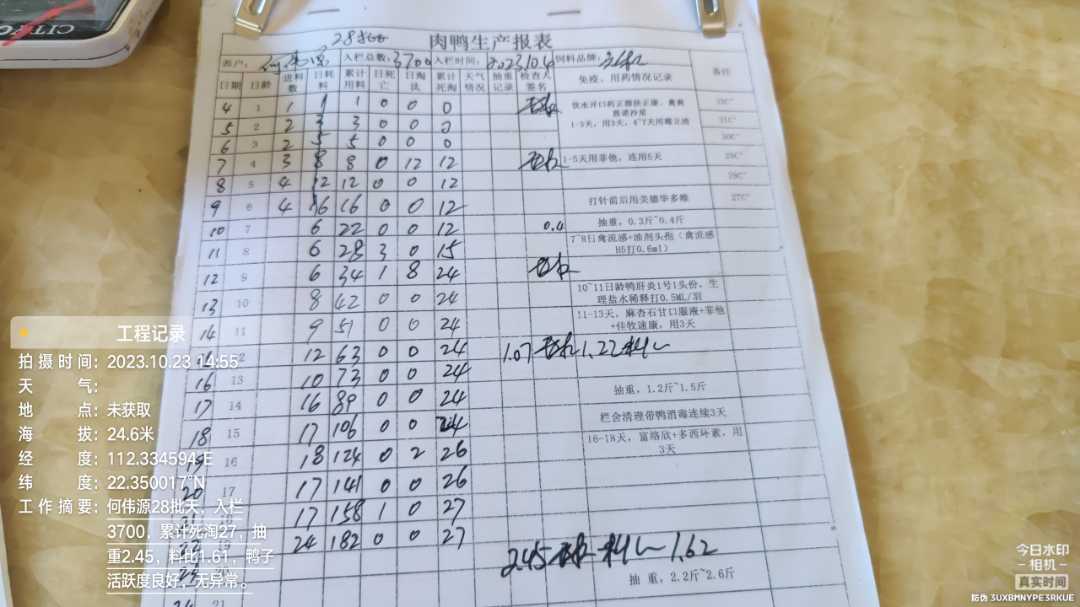 CITI
28批
肉鸭生产报表
客户： 入栏总数：3700 入栏时间：2023.10.4 饲料品牌：
日期 日龄 进料数 日耗料 累计用料 日死亡 日淘汰 累计死淘 天气情况 抽重记录 检查人签名 免疫、用药情况记录 备注
4 1 1 1 1 0 0 0 饮水开口药正源扶正康、禽爽 33C°
1-3天，用3天，4~7天用霉立清
5 2 2 3 3 0 0 0 31C°
6 3 2 5 5 0 0 0 30C°
7 4 3 8 8 0 12 12 1-5天用菲他，连用5天 29C°
8 5 4 12 12 0 0 12 28C°
9 6 4 16 16 0 0 12 打针前后用美德华多维 27C°
10 7 6 22 0 0 12 0.4 抽重，0.3斤~0.4斤
11 8 6 28 3 0 15 7~8日禽流感+油剂头孢（禽流感H5打0.6ml）
12 9 6 34 1 8 24
13 10 8 42 0 0 24 10~11日龄鸭肝炎1号1头份，生理盐水稀释打0.5ML/羽
14 11 9 51 0 0 24 11-13天，麻杏石甘口服液+菲他+佳牧速康，用3天
12 63 0 0 24 1.07 1.22
16 13 10 73 0 0 24 抽重，1.2斤~1.5斤
17 14 16 89 0 0 24
18 15 17 106 0 0 24 栏舍清理带鸭消毒连续3天
19 16 18 124 0 2 26 16-18天，富络欣+多西环素，用3天
20 17 17 141 0 0 26
17 158 1 0 27
24 182 0 0 27
2.45 1.62
抽重，2.2斤~2.6斤
21
工程记录
拍摄时间：2023.10.23 14:55
天气：
地点：未获取
海拔：24.6米
经度：112.334594°E
纬度：22.350017°N
工作摘要：何伟源28批天，入栏
3700，累计死淘27，抽
重2.45，料比1.61，鸭子
活跃度良好，无异常。
今日水印
相机
真实时间
防伪 3UXBMNYPE3RKUE